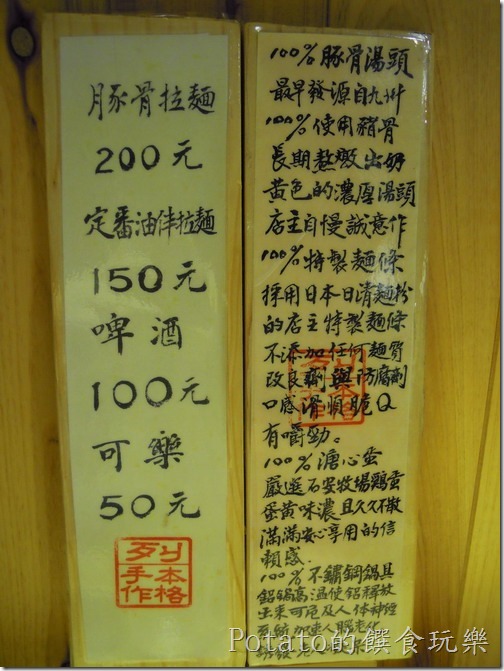 豚骨拉麵
200元
定番油伴拉麵
150元
啤酒
100元
可樂
50元
列
本格
手作
100%豚骨湯頭
最早發源自九州
100%使用豬骨
長期熬燉出奶
黃色的濃厚湯頭
店主自慢誠意作
100%特製麵條
採用日本日清麵粉
的店主特製麵條
不添加任何麵質
改良劑與防腐劑
口感滑順脆Q
有嚼勁。
100%溏心蛋
嚴選石安牧場鷄蛋
蛋黃味濃且久久不散
滿滿安心享用的信
賴感.
100%不鏽鋼鍋具
鋁鍋高溫使鋁釋放
出來可危及人体神經
系統加速人腦老化
Potato的饌食玩樂